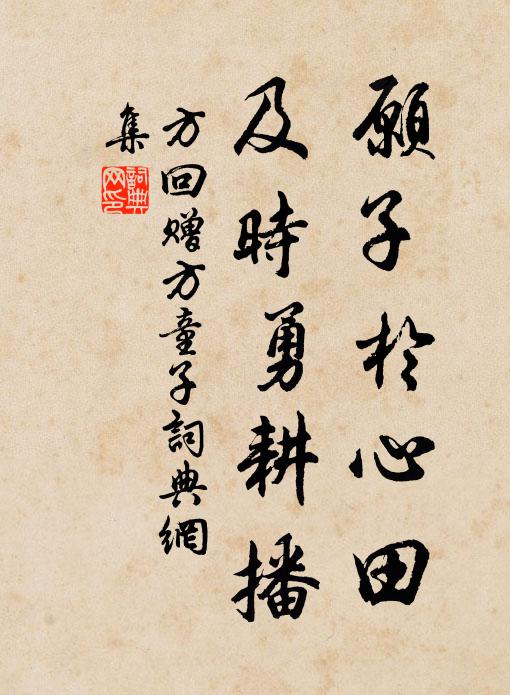 願子於心田
及時勇耕播
方回贈方童子詞典網
集
詞典
网印